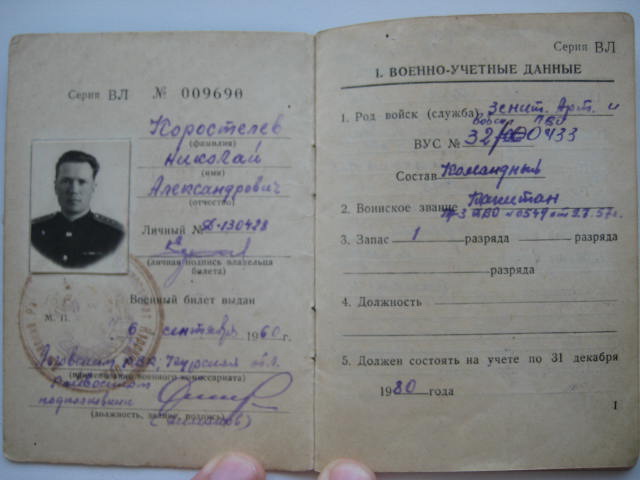 Серия ВЛ № 009690
Коростелев
(фамилия)
Николай
(имя)
Александрович
(отчество)
Личный №
(личная подпись владельца
билета)
Военный билет выдан
М. П.
6 сентября 1960 г.
военного комиссариата)
подполковник
(должность, звание, подпись)
Серия ВЛ
1. ВОЕННО-УЧЕТНЫЕ ДАННЫЕ
1. Род войск (служба) Зенит. Арт. и
ПВО
ВУС №
Состав Командный
2. Воинское звание Капитан
3. Запас 1 разряда разряда
разряда
4. Должность
5. Должен состоять на учете по 31 декабря
1980 года
1